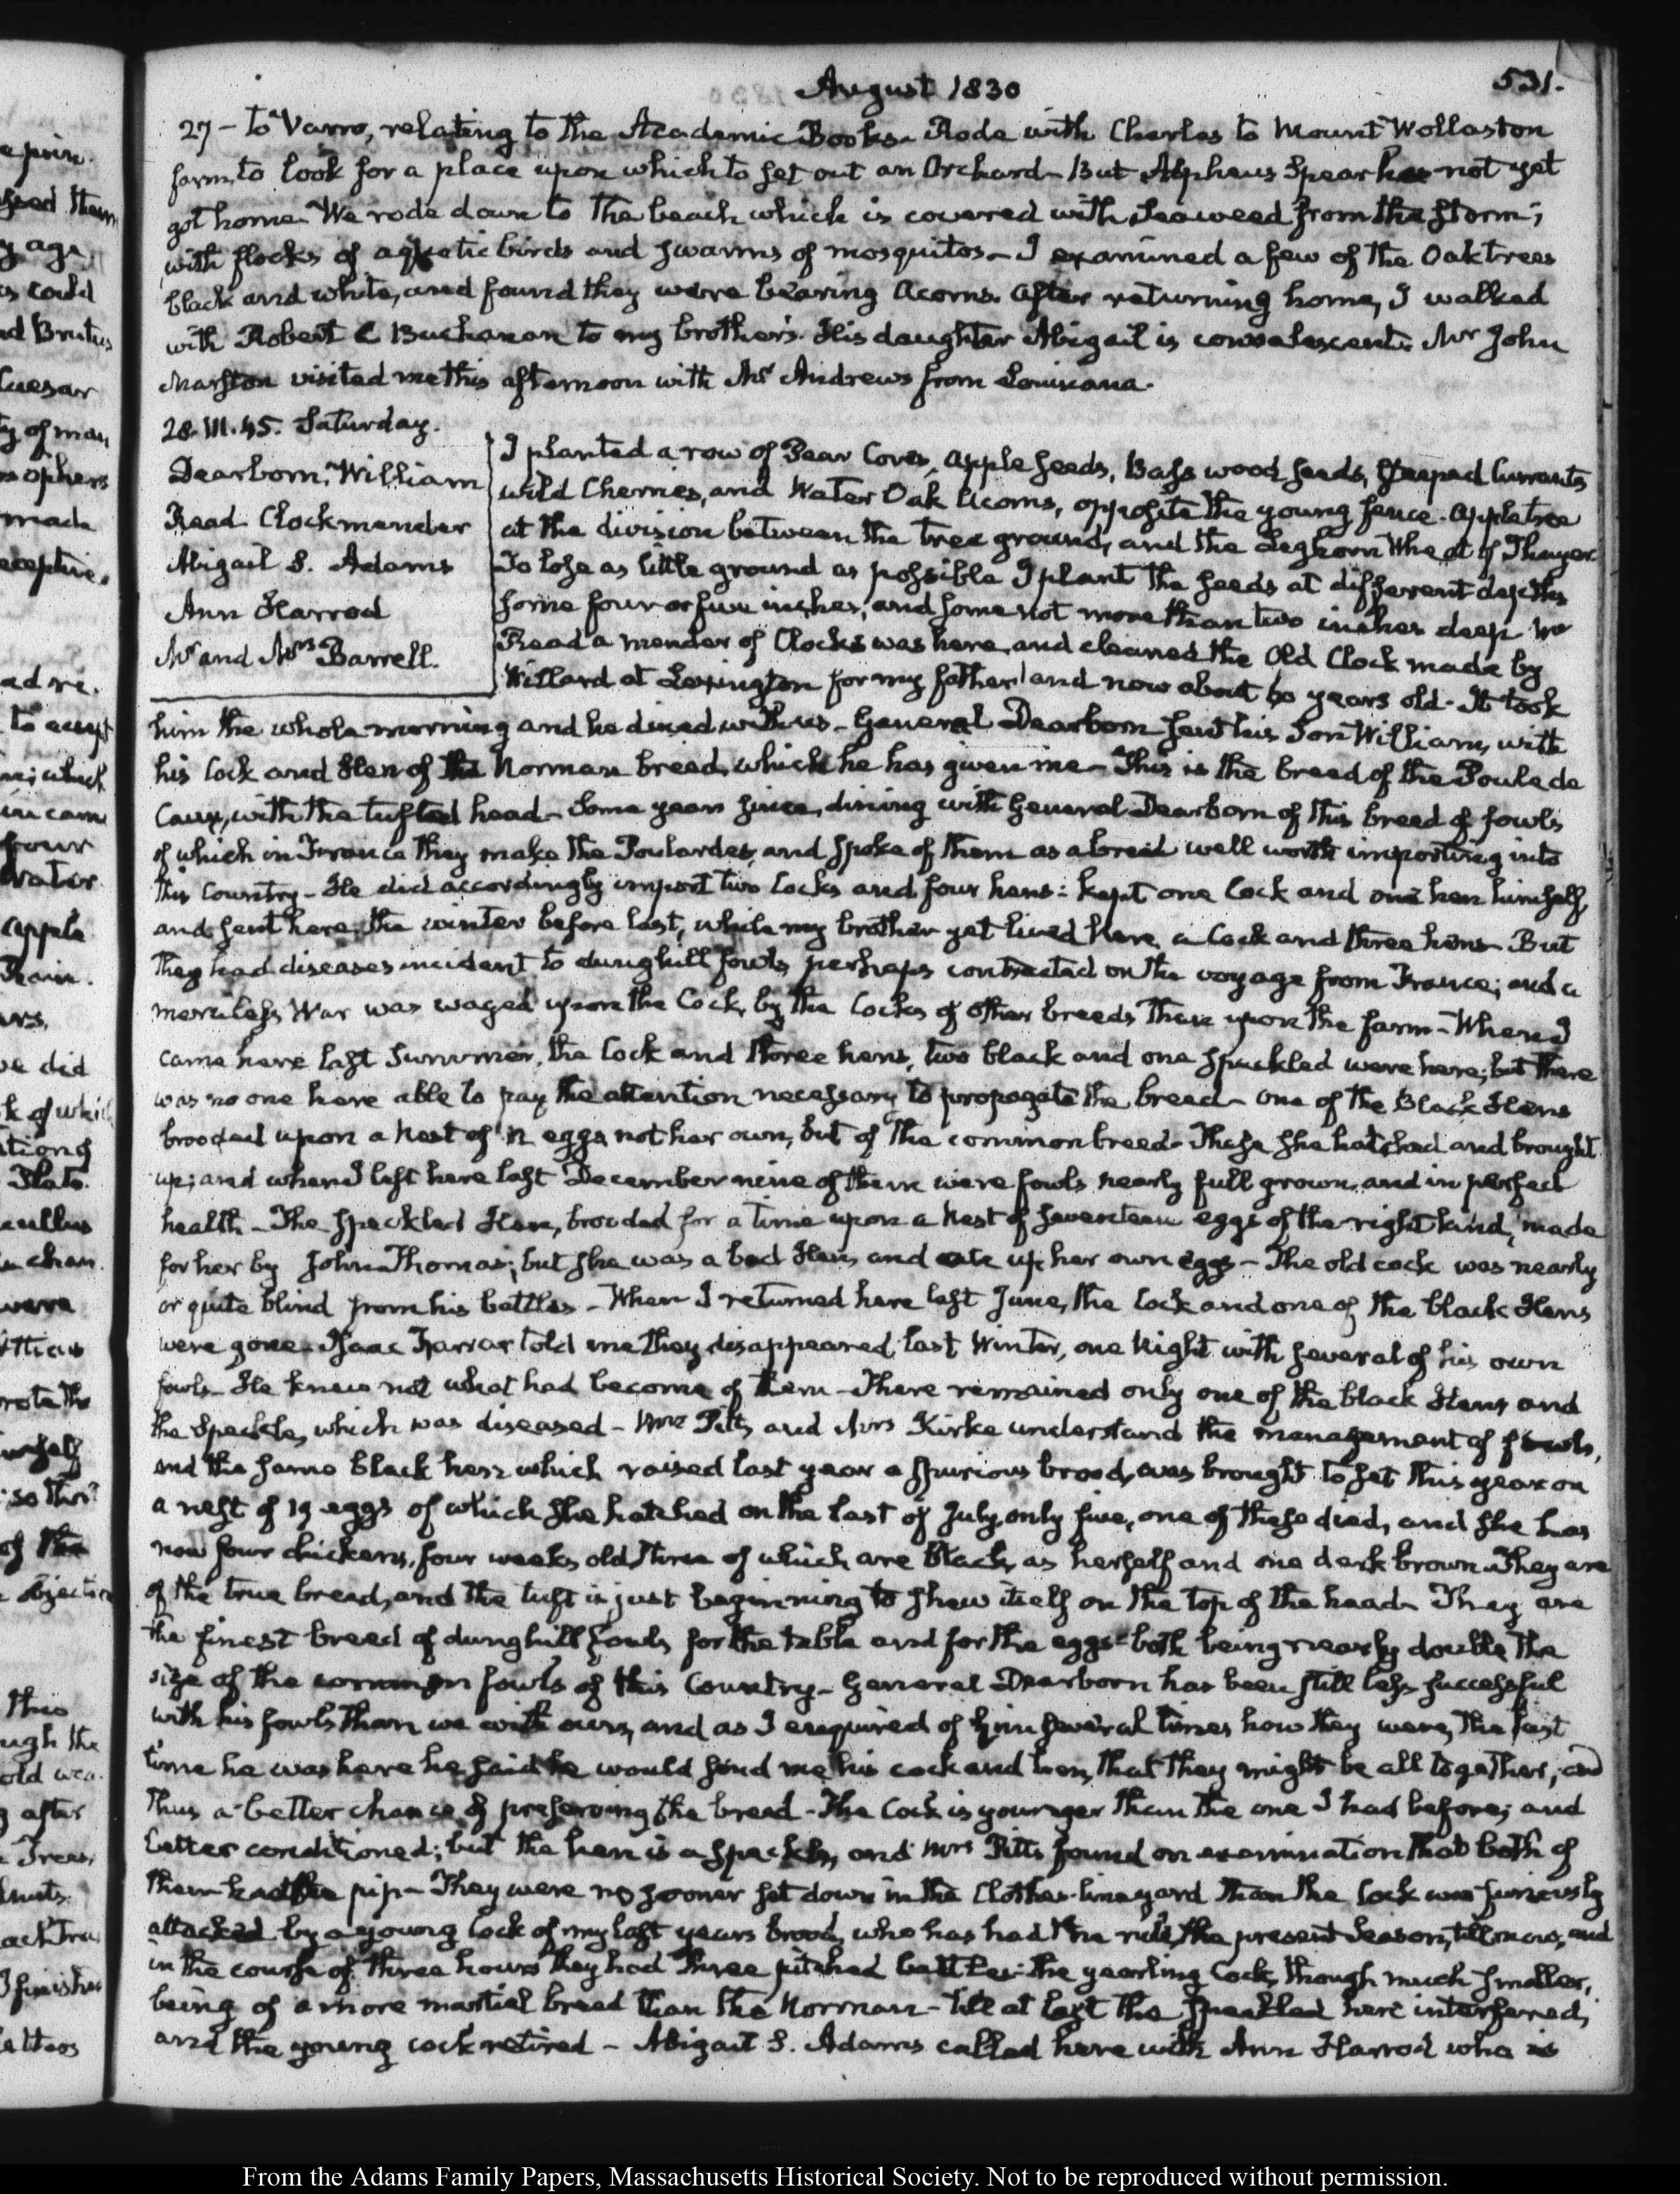 August 1830
531.
27 – to Varro, relating to the Academic Books – Rode with Charles to Mount Wollaston
farm, to look for a place upon which to set out an Orchard – But Alpheus Spear has not yet
got home – We rode down to the beach which is covered with Seaweed from the storm;
with flocks of aquatic birds and swarms of mosquitos – I examined a few of the Oak trees
black and white, and found they were bearing Acorns. After returning home, I walked
with Robert C Buchanan to my brother's. His daughter Abigail is convalescent. Mr John
Marston visited me this afternoon with Mr Andrews from Louisiana.
28. III. 45. Saturday.
Dearborn, William
Read. Clockmender
Abigail S. Adams
Ann Harrod
Mr and Mrs Barrell.
I planted a row of Pear Cores, Apple seeds, Bass wood seeds, steeped Currants
wild Cherries, and Water Oak Acorns, opposite the young fence. Appletree
at the division between the tree ground, and the Leghorn Wheat of Thayer
To lose as little ground as possible I plant the seeds at different depths
some four or five inches, and some not more than two inches deep. Mr
Read a mender of Clocks was here, and cleaned the Old Clock made by
Willard at Lexington for my father and now about 60 years old. It took
him the whole morning and he dined with us – General Dearborn sent his Son William, with
his Cock and Hen of the Norman breed, which he has given me – This is the breed of the Poule de
Caux, with the tufted head – Some years since, dining with General Dearborn of this breed of fowls
of which in France they make the Poulardes, and spoke of them as a breed well worth importing into
this Country – He did accordingly import two Cocks and four hens: kept one Cock and one hen himself,
and sent here, the winter before last, while my brother yet lived here, a Cock and three hens – But
they had diseases incident to dunghill fowls perhaps contracted on the voyage from France; and a
merciless War was waged upon the Cock, by the Cocks of other breeds then upon the farm – When I
came here last Summer, the Cock and three hens, two black and one speckled were here; but there
was no one here able to pay the attention necessary to propagate the breed – One of the Black Hens
brooded upon a Nest of 12 eggs not her own, but of the common breed – These she hatched and brought
up; and when I left here last December nine of them were fowls nearly full grown, and in perfect
health – The speckled Hen, brooded for a time upon a Nest of seventeen eggs of the right kind, made
for her by John Thomas; but she was a bad Hen and ate up her own eggs – The old cock was nearly
or quite blind from his battles – When I returned here last June, the Cock and one of the black Hens
were gone – Isaac Farrar told me they disappeared last Winter, one Night with several of his own
fowls – He knew not what had become of them – There remained only one of the black Hens and
the Speckle, which was diseased – Mrs Pitts and Mrs Kirke understand the management of fowls,
and the same black hen which raised last year a spurious brood, was brought to set this year on
a nest of 19 eggs of which she hatched on the last of July only five, one of these died, and she has
now four chickens, four weeks old, three of which are black, as herself and one dark brown. They are
of the true breed, and the tuft is just beginning to shew itself on the top of the head – They are
the finest breed of dunghill fowls for the table and for the eggs – both being nearly double the
size of the common fowls of this Country – General Dearborn has been still less successful
with his fowls than we with ours, and as I enquired of him several times how they were, the last
time he was here he said he would send me his cock and hen, that they might be all together, and
thus a better chance of preserving the breed – The Cock is younger than the one I had before; and
better conditioned; but the hen is a speckle, and Mrs Pitts found on examination that both of
them had the pip – They were no sooner set down in the Clothes-line yard than the Cock was furiously
attacked by a young Cock of my last years brood, who has had the rule the present Season, till now, and
in the course of three hours they had three pitched battles – the yearling Cock, though much smaller,
being of a more martial breed than the Norman – till at last the speckled hen interfered,
and the young cock retired – Abigail S. Adams called here with Ann Harrod who is
From the Adams Family Papers, Massachusetts Historical Society. Not to be reproduced without permission.